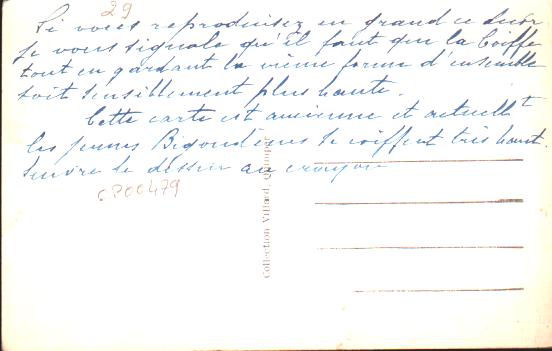 29
Si vous reproduisez en grand ce
je vous signale qu'il faut que la Coiffe
tout en gardant la même forme d'ensemble
soit sensiblement plus haute.
Cette carte est ancienne et actuellt
les jeunes Bigoudènes se coiffent très haut.
Suivre le dessin au crayon
CP00479
Collection Villard, Quimper